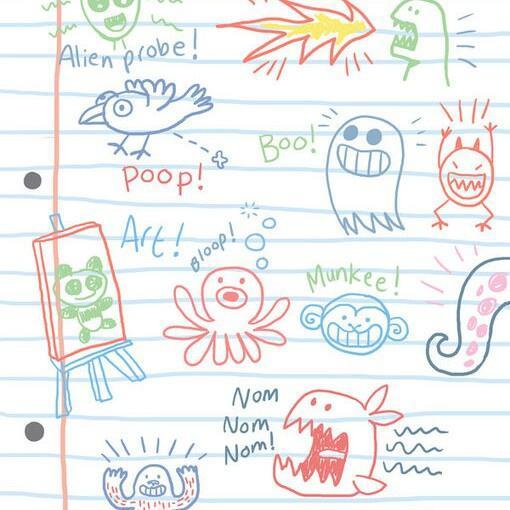 Alien probe!
Poop!
Boo!
Art!
Bloop!
Munkee!
Nom
Nom
Nom!